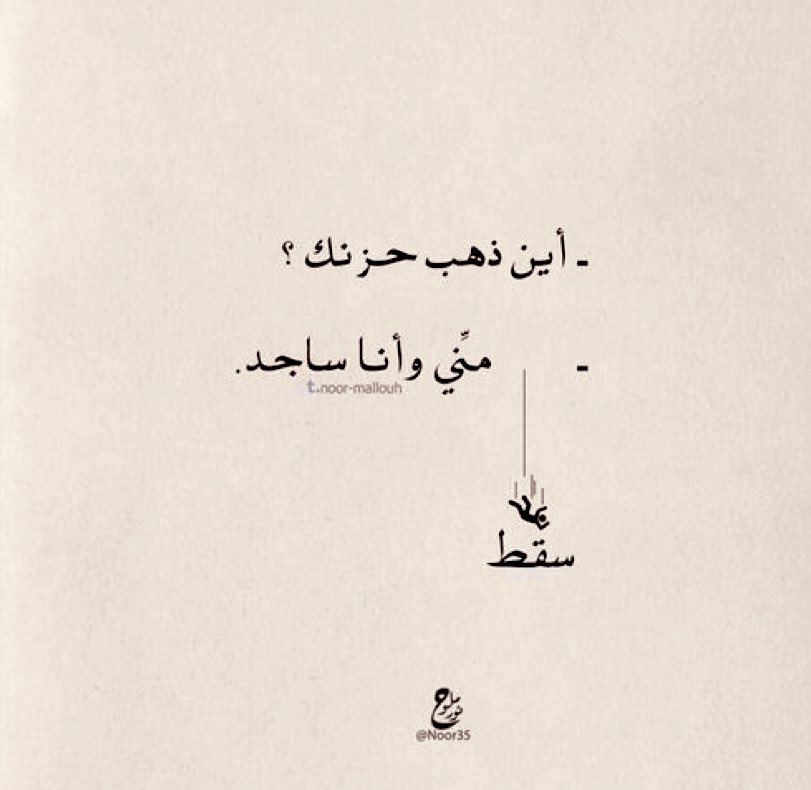 ـ أين ذهب حزنك ؟
ـ منِّي وأنا ساجد.
t.noor-mallouh
سقط
نور ملوح
@Noor35